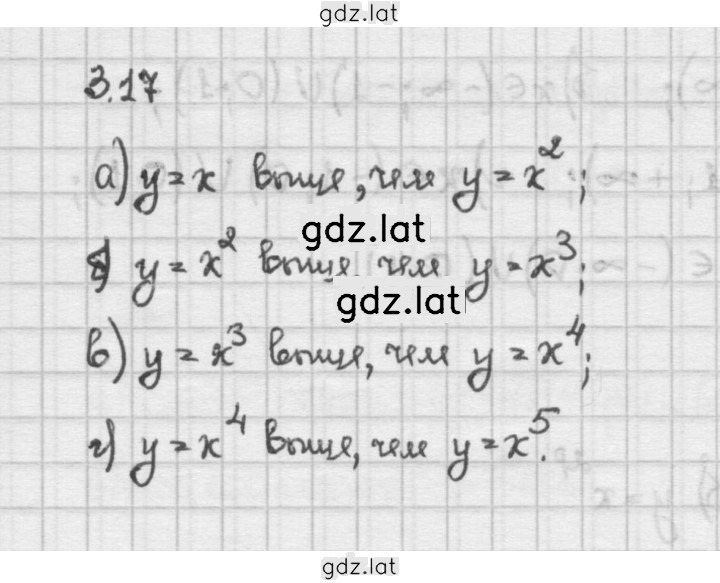 gdz.lat
3.17
а) y = x выше, чем y = x²;
gdz.lat
б) y = x² выше чем y = x³;
gdz.lat
в) y = x³ выше, чем y = x⁴;
г) y = x⁴ выше, чем y = x⁵.
gdz.lat